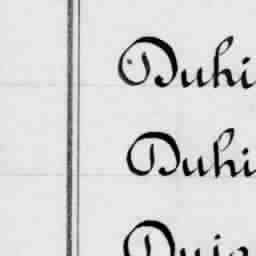 Duhi
Duhi